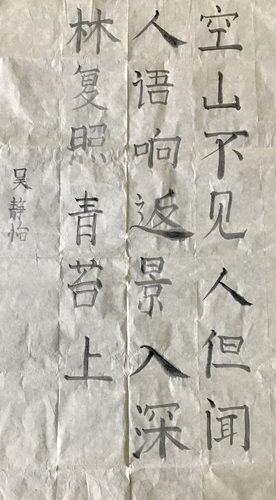 空山不见人但闻
人语响返景入深
林复照青苔上
吴静怡